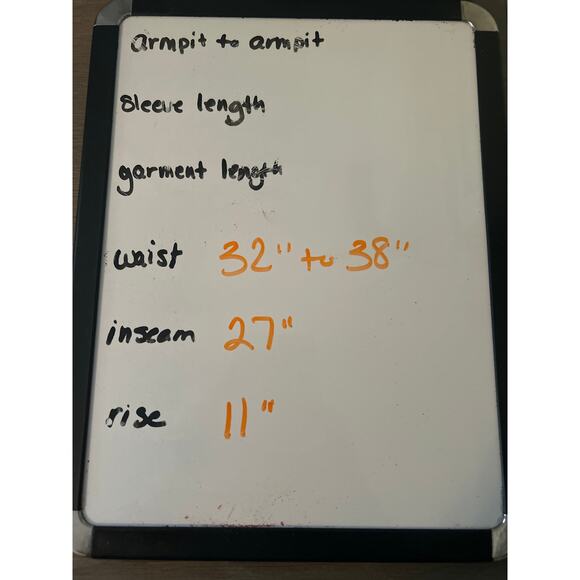 armpit to armpit
sleeve length
garment length
waist 32" to 38"
inseam 27"
rise 11"